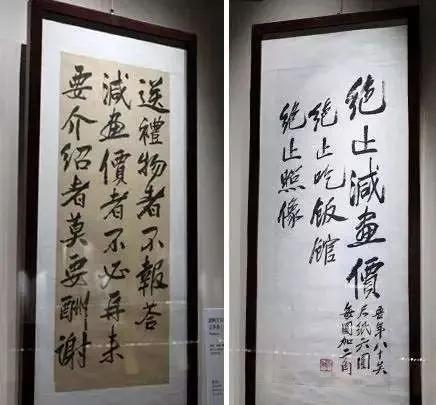 送禮物者不報荅
減畫價者不必再来
要介紹者莫要酬謝
絕止減畫價
絕止吃飯館
絕止照像
吾年八十矣
尺紙六圓
每圓加二角